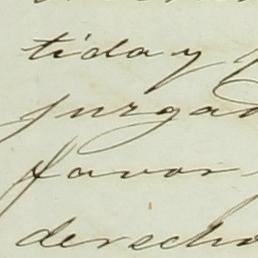 tida y
jurgad
favor
derecho